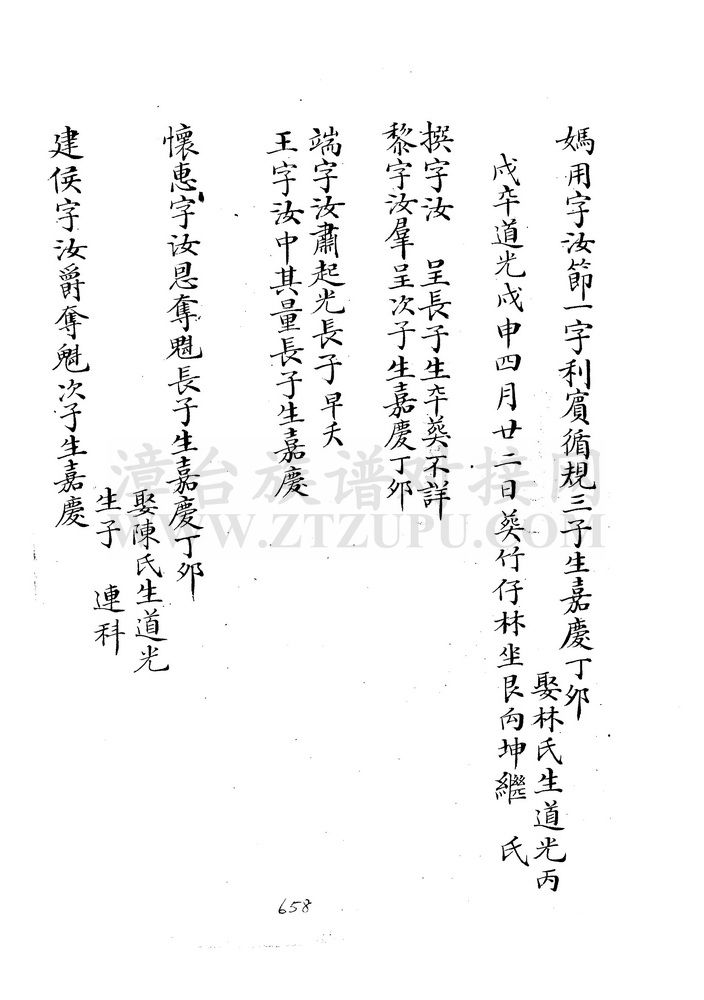 媽用字汝節一字利賔循規三子生嘉慶丁夘
娶林氏生道光丙
戍卒道光戍申四月廿二日葵竹仔林坐艮向坤繼 氏
撰字汝 呈長子生卒葵不詳
黎字汝羣呈次子生嘉慶丁夘
端字汝肅起光長子早夭
王字汝中其量長子生嘉慶
懷惠字汝恩奪魁長子生嘉慶丁夘
娶陳氏生道光
生子 連科
建侯字汝爵奪魁次子生嘉慶
漳台族谱对接网
WWW.ZTZUPU.COM
658